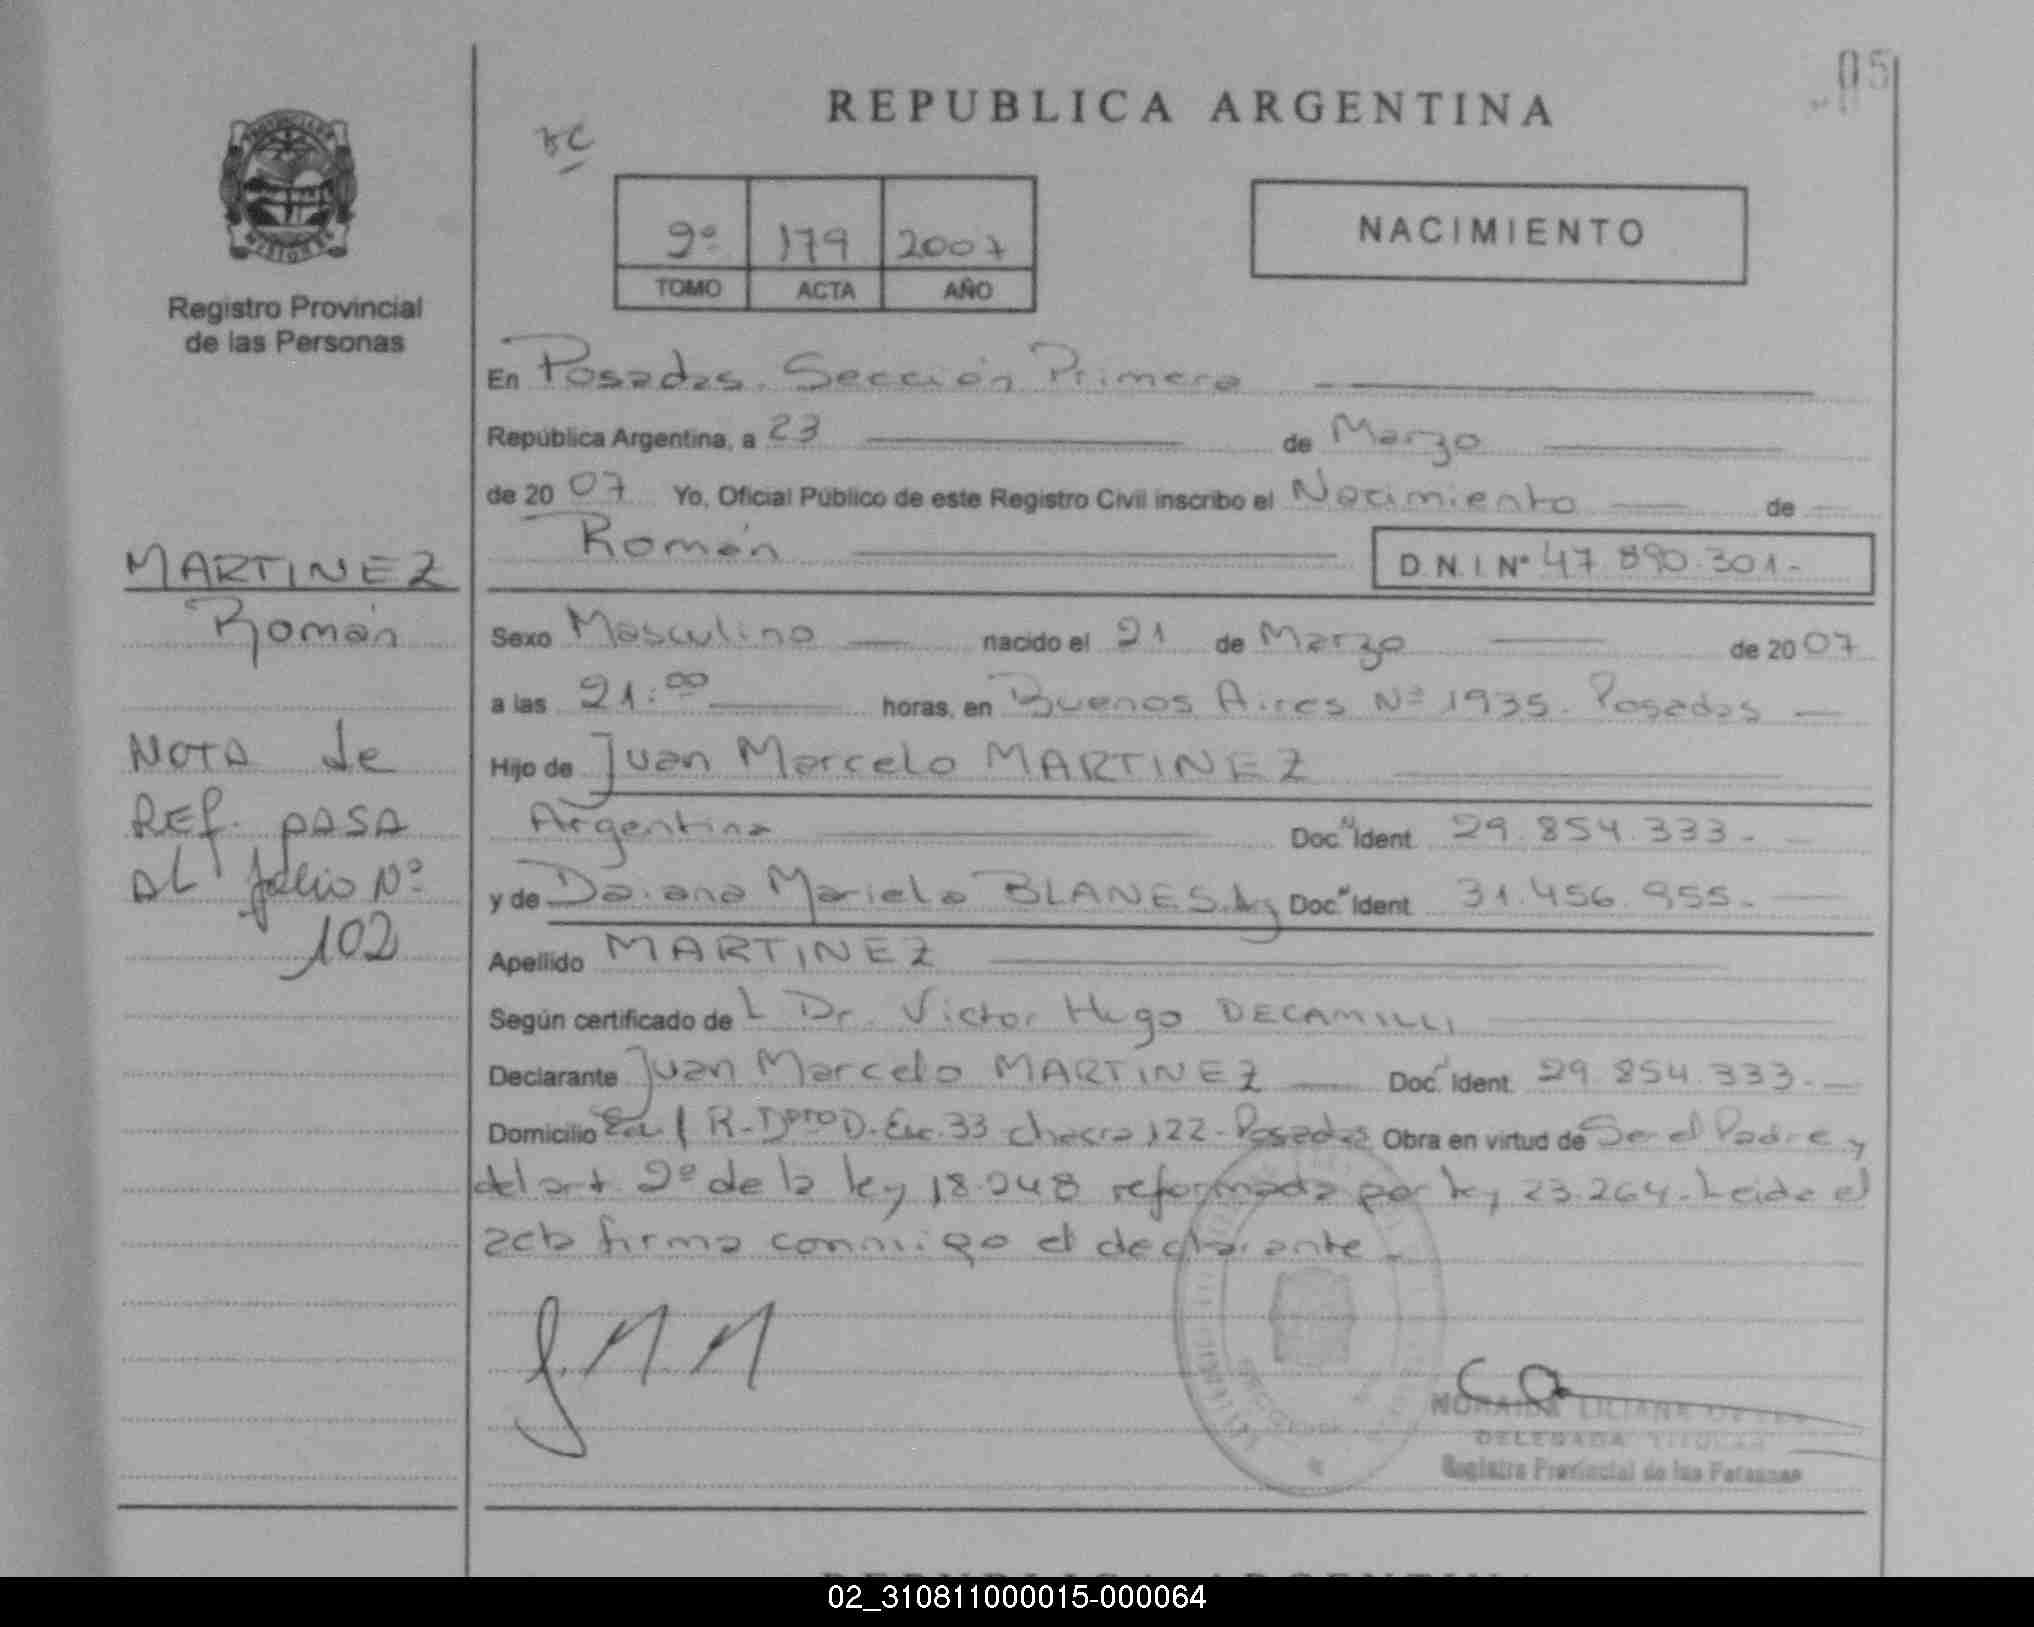 05
REPUBLICA ARGENTINA
9º 179 2007
TOMO ACTA AÑO
NACIMIENTO
Registro Provincial
de las Personas
En Posadas. Sección Primera
República Argentina, a 23 de Marzo
de 20 07 Yo, Oficial Público de este Registro Civil inscribo el Nacimiento de
Román D.N.I Nº 47.890.301.-
MARTINEZ
Román
Sexo Masculino nacido el 21 de Marzo de 20 07
a las 21:00 horas, en Buenos Aires Nº 1935. Posadas
Hijo de Juan Marcelo MARTINEZ
Argentina Doc. Ident 29.854.333.-
y de Daiana Mariela BLANES Doc. Ident 31.456.955.-
Apellido MARTINEZ
NOTA de
REF. PASA
AL folio Nº
102
Según certificado de L Dr. Victor Hugo DECAMILLI
Declarante Juan Marcelo MARTINEZ Doc. Ident. 29.854.333.-
Domicilio 33 chacra 122 - Posadas Obra en virtud de Ser el Padre y
del art. 2º de la ley 18.248 reformada por ley 23.264. Leida el
acta firma conmigo el declarante.-
DELEGADA TITULAR
Registro Provincial de las Personas
02_310811000015-000064